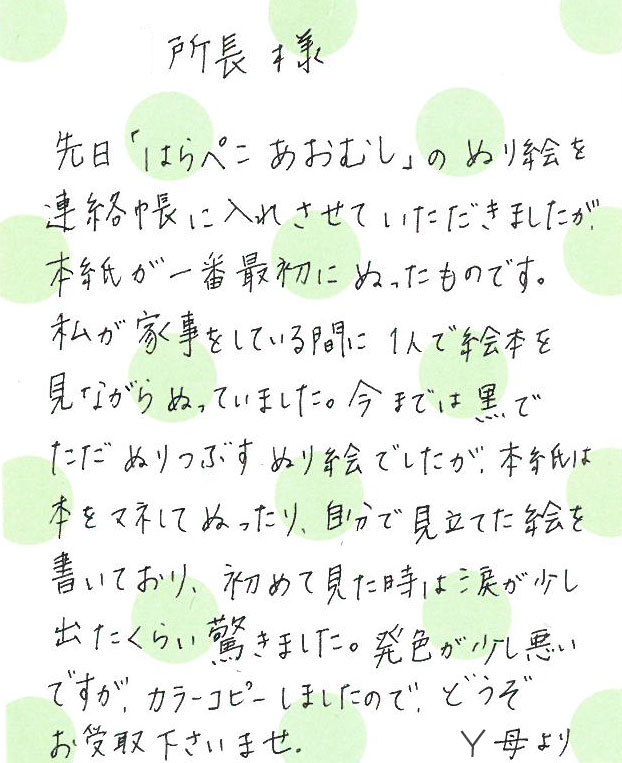 所長様
先日「はらぺこあおむし」のぬり絵を
連絡帳に入れさせていただきましたが、
本紙が一番最初にぬったものです。
私が家事をしている間に1人で絵本を
見ながらぬっていました。今までは黒で
ただぬりつぶすぬり絵でしたが、本紙は
本をマネしてぬったり、自分で見立てた絵を
書いており、初めて見た時は涙が少し
出たくらい驚きました。発色が少し悪い
ですが、カラーコピーしましたので、どうぞ
お受取下さいませ.
Y母より